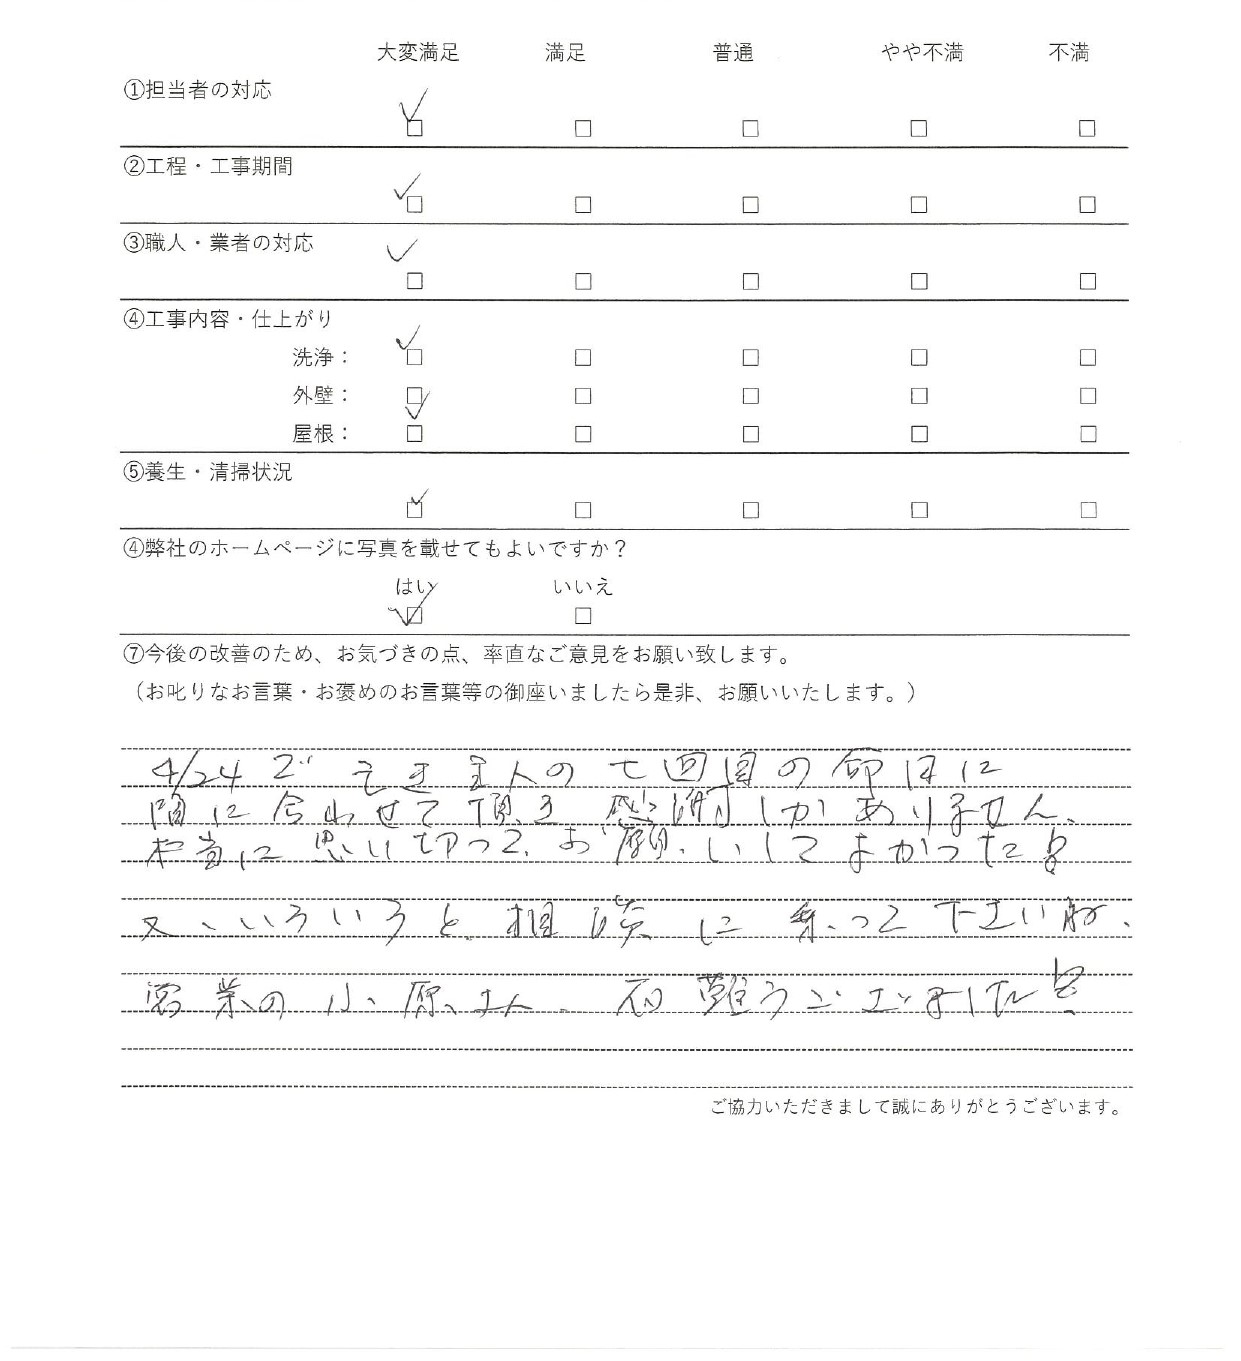 大変満足 満足 普通 やや不満 不満
①担当者の対応
☑ □ □ □ □
②工程・工事期間
☑ □ □ □ □
③職人・業者の対応
☑ □ □ □ □
④工事内容・仕上がり
洗浄： ☑ □ □ □ □
外壁： ☑ □ □ □ □
屋根： □ □ □ □ □
⑤養生・清掃状況
☑ □ □ □ □
④弊社のホームページに写真を載せてもよいですか？
はい いいえ
☑ □
⑦今後の改善のため、お気づきの点、率直なご意見をお願い致します。
（お叱りなお言葉・お褒めのお言葉等の御座いましたら是非、お願いいたします。）
4/24で 主人の七回目の命日に
間に合わせて頂き感謝しかありません、
本当に思い切って、お願いしてよかった!
又、いろいろと相談に乗って下さいね、
営業の小原さん、有難うございました!
ご協力いただきまして誠にありがとうございます。